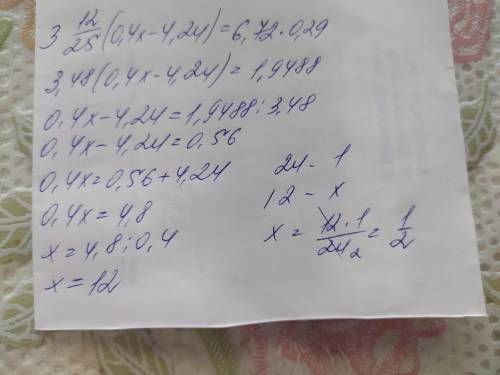 3 12/25 (0,4x-4,24)=6,72·0,29
3,48(0,4x-4,24)=1,9488
0,4x-4,24=1,9488:3,48
0,4x-4,24=0,56
0,4x=0,56+4,24
0,4x=4,8
x=4,8:0,4
x=12
24-1
12-x
x=12·1/24 2=1/2